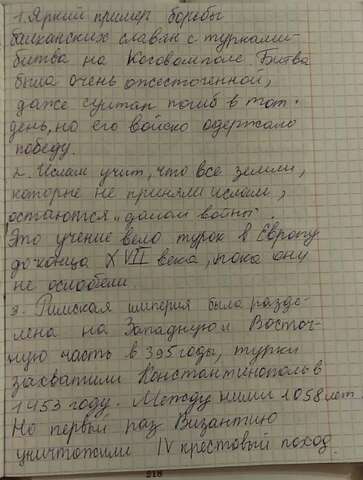 1. Яркий пример борьбы
балканских славян с турками-
битва на Косовомполе. Битва
была очень ожесточенной,
даже султан погиб в тот.
день, но его войско одержало
победу.
2. Ислам учит, что все земли,
которые не приняли ислам,
остаются "домом войны".
Это учение вело турок в Европу
до конца XVII века, пока они
не ослабели.
3. Римская империя была разде-
лена на Западную и Восточ-
ную часть в 395 году, турки
захватили Константинополь в
1453 году. Между ними 1058 лет
Но первый раз Византию
уничтожили IV крестовый поход.
218